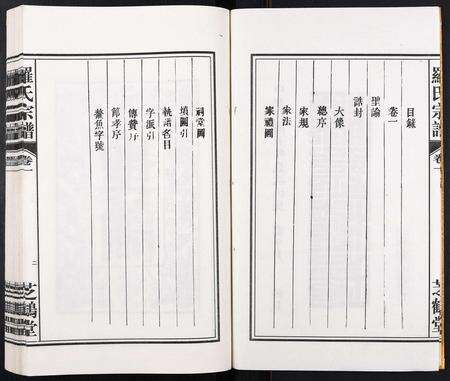 羅氏宗譜
卷一
芝鶴堂
目錄
卷一
聖諭
誥封
大像
總序
家規
家法
家禮圖
祠堂圖
墳圖引
執譜名目
字派引
傳贊序
節孝序
鰲魚字號
羅氏宗譜
卷一
二
芝鶴堂